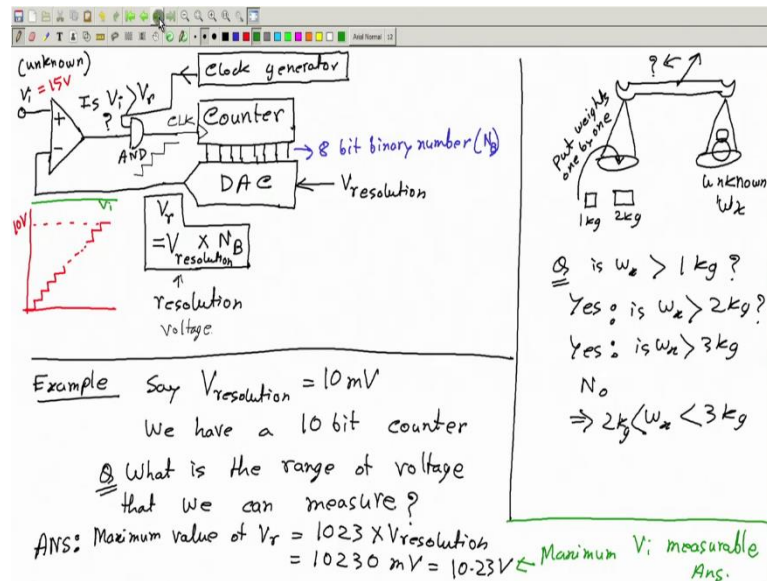 Arial Normal 12
(unknown)
Vi = 15V
Is Vi > Vr
?
AND
Clock generator
CLK
Counter
→ 8 bit binary number (NB)
DAC
Vresolution
Vi
10V
Vr
= Vresolution × NB
resolution
voltage
Example Say Vresolution = 10 mV
We have a 10 bit counter
Q What is the range of voltage
that we can measure?
ANS: Maximum value of Vr = 1023 × Vresolution
= 10230 mV = 10.23V ← Maximum Vi measurable
Ans.
? <
Put weights
one by one
1kg 2kg
unknown
Wx
Q is wx > 1 kg ?
Yes : is wx > 2kg ?
Yes : is wx > 3kg
No
⇒ 2kg < wx < 3kg